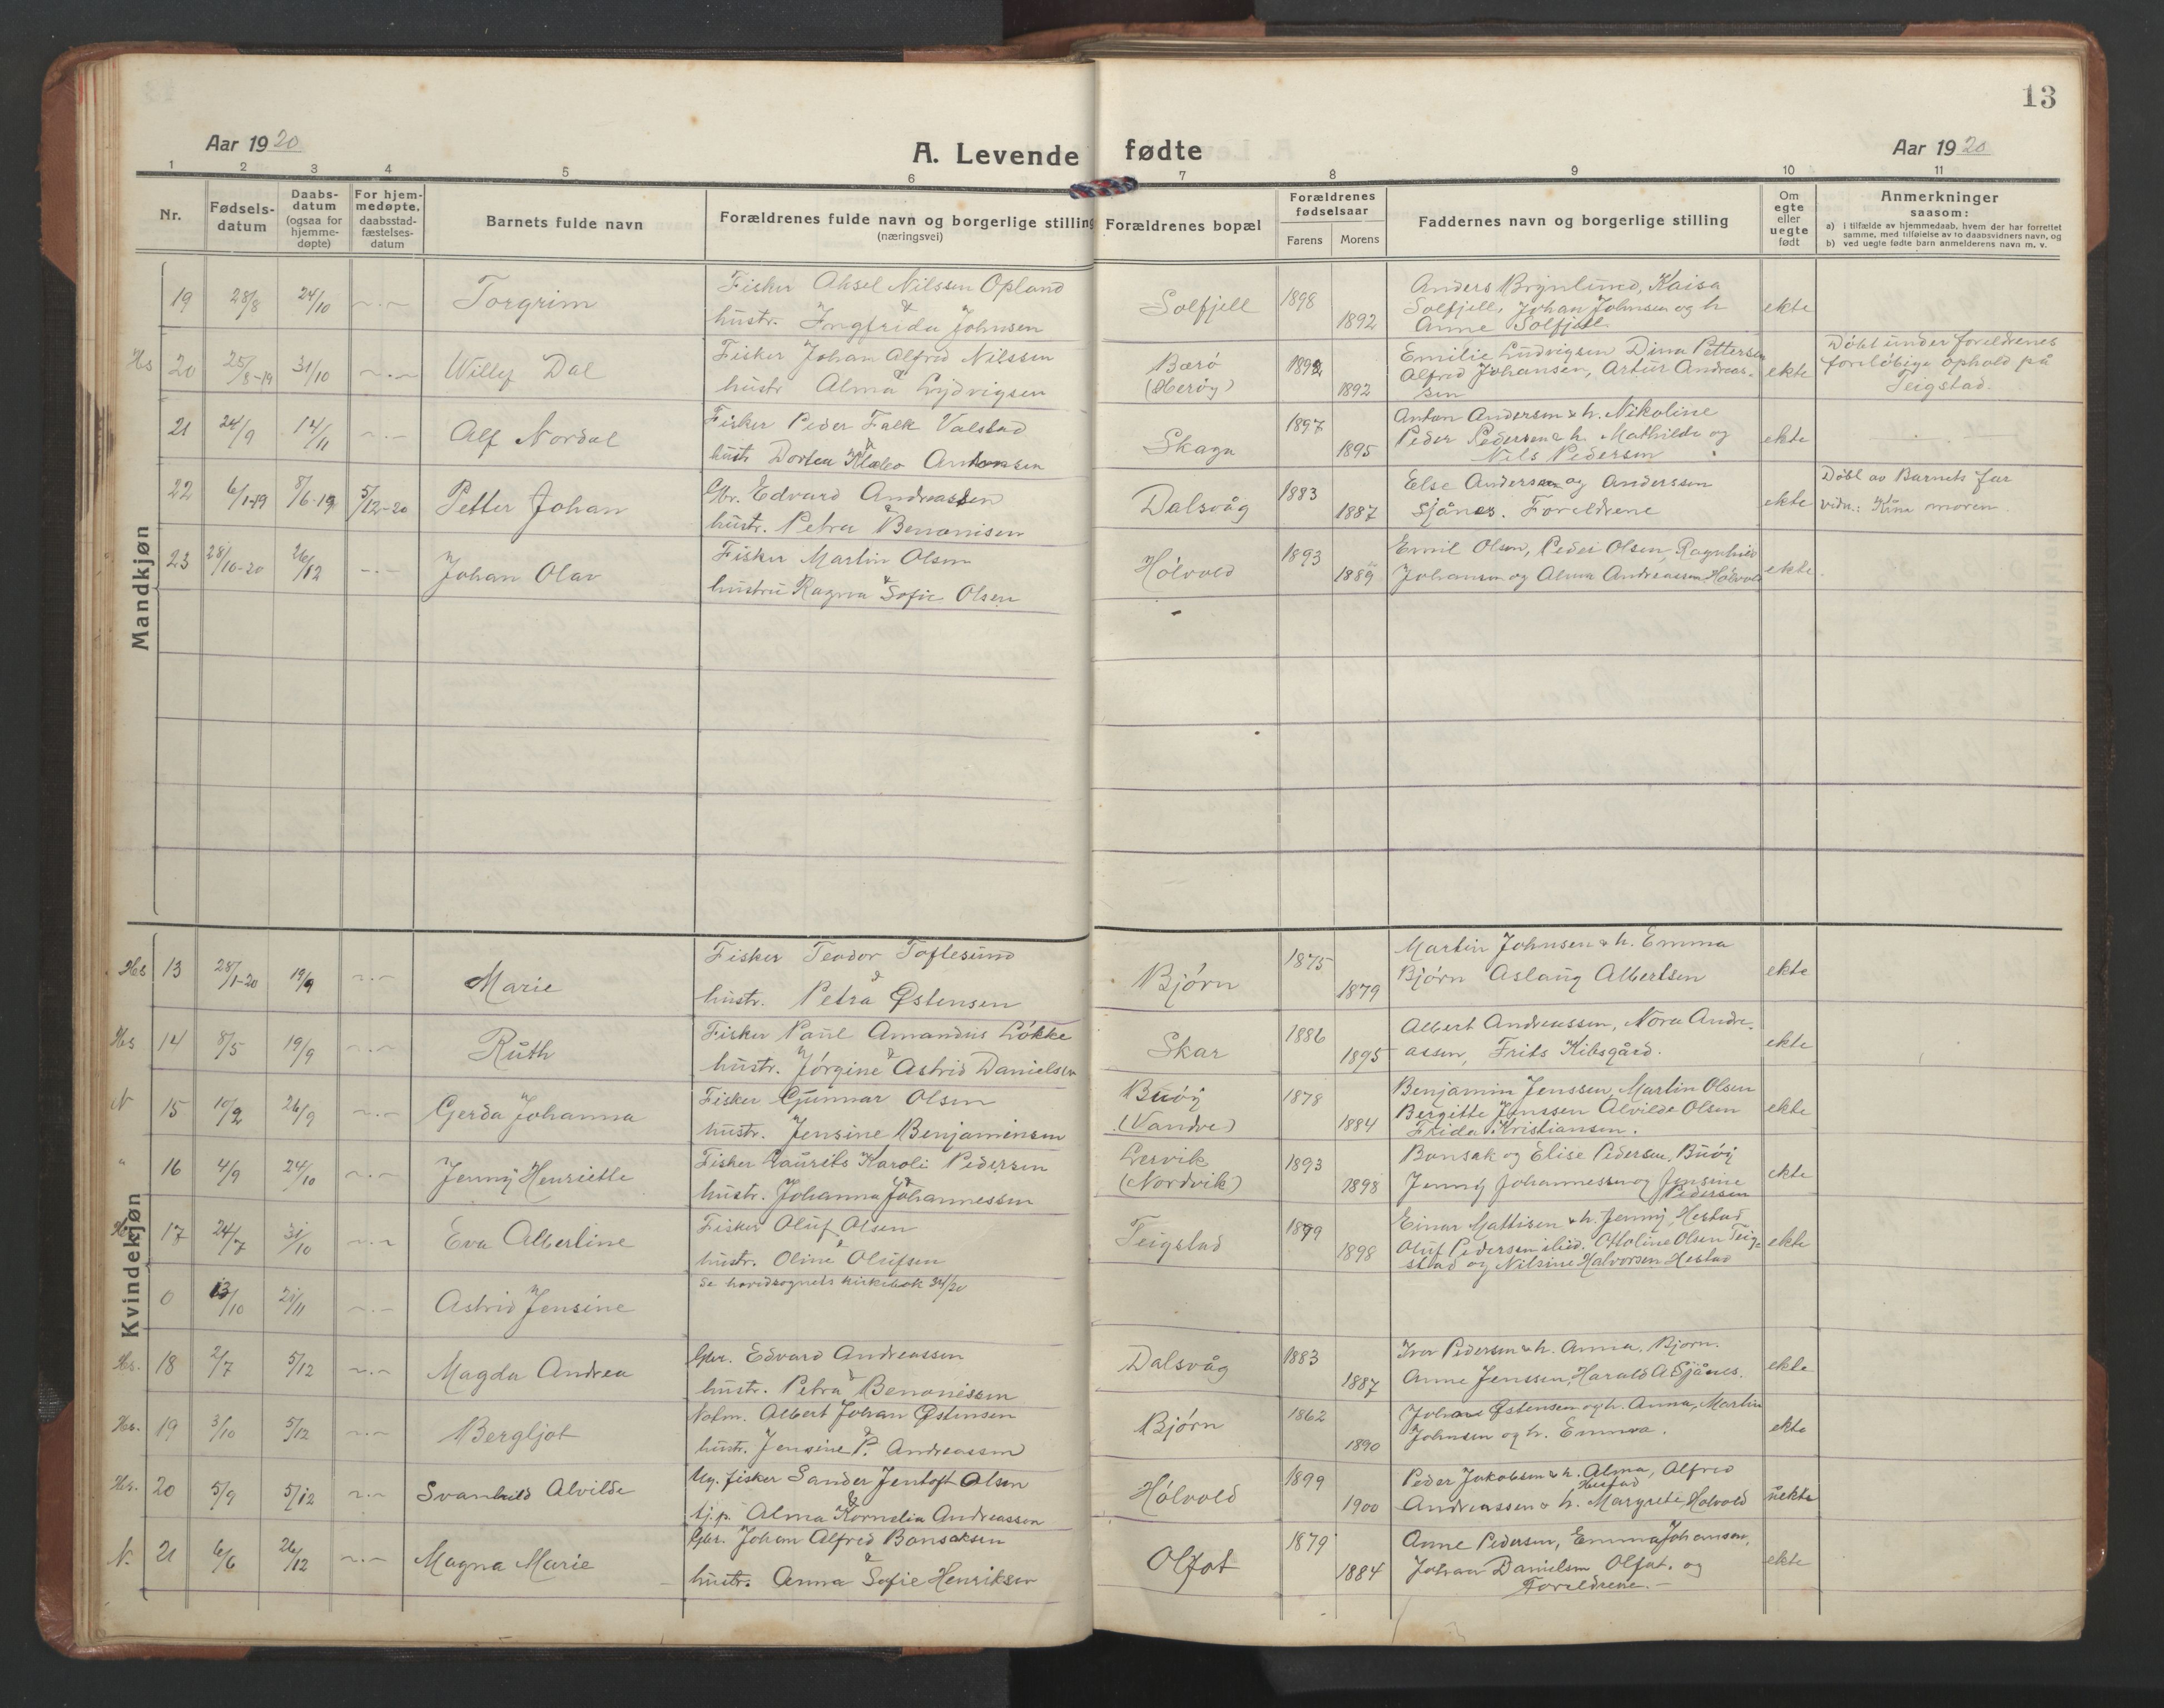 13
Aar 1920
A. Levende fødte
Aar 1920
1 2 3 4 5 6 7 8 9 10 11
Nr.
Fødsels-
datum
Daabs-
datum
(ogsaa for
hjemme-
døpte)
For hjem-
medøpte,
daabsstad-
fæstelses-
datum
Barnets fulde navn
Forældrenes fulde navn og borgerlige stilling
(næringsvei)
Forældrenes bopæl
Forældrenes
fødselsaar
Farens Morens
Faddernes navn og borgerlige stilling
Om
egte
eller
uegte
født
Anmerkninger
saasom:
a) i tilfælde av hjemmedaab, hvem der har forrettet
samme, med tilføielse av to daabsvidners navn, og
b) ved uegte fødte barn anmelderens navn m. v.
Mandkjøn
19 28/8 24/10 -"- Torgrim
Fisker Aksel Nilssen Opland
&
hustr. Ingfrida Johnsen
Solfjell 1898 1892
Anders Brynlund, Kaisa
Solfjell, Johan Johnsen og h
Anne Solfjell
ekte
Hs 20 25/8-19 31/10 -"- Willy Dal
Fisker Johan Alfred Nilssen
&
hustr Alma Lydvigsen
Bærø
(Herøy)
1892 1892
Emilie Ludvigsen Dina Pettersen
Alfred Johansen, Artur Andreas-
sen
ekte
Døbt under foreldrenes
foreløbige ophold på
Teigstad.
21 24/9 14/11 -"- Alf Nordal
Fisker Peder Falk Valstad
&
hustr Dortea Antonsen
Skaga 1897 1895
Anton Andersen & h. Nikoline
Peder Pedersen & h. Mathilde og
Nils Pedersen
ekte
22 6/1-19 8/6-19 5/12-20 Petter Johan
Gbr. Edvard Andreassen
&
hustr. Petra Benonisen
Dalsvåg 1883 1887
Else Andersen og Anderssen
Sjånes. Foreldrene
ekte
Døbt av Barnets far
vidn.: moren
23 28/10-20 26/12 -"- Johan Olav
Fisker Martin Olsen
&
hustru Ragna Sofie Olsen
Hølvold 1893 1889
Emil Olsen, Peder Olsen, Ragnhild
Johansen og Alma Andreassen Hølvold
ekte
Kvindekjøn
Hs 13 28/1-20 19/9 -"- Marie
Fisker Teodor Toftesund
&
hustr. Petra Østensen
Bjørn 1875 1879
Martin Johnsen & h. Emma
Bjørn Aslaug Albertsen
ekte
Hs 14 8/5 19/9 -"- Ruth
Fisker Paul Amandus Løkke
&
hustr. Jørgine Astrid Danielsen
Skar 1886 1895
Albert Andreassen, Nora Andre-
assen, Frits Kibsgård.
ekte
N 15 10/2 26/9 -"- Gerda Johanna
Fisker Gunnar Olsen
hustr. Jensine Benjaminsen
Buøy
(Vandve)
1878 1884
Benjamin Jenssen, Martin Olsen
Bergitte Jenssen Alvilde Olsen
Frida Kristiansen.
ekte
" 16 4/9 24/10 -"- Jenny Henriette
Fisker Laurits Karoli Pedersen
&
hustr. Johanna Johannessen
Lervik
(Nordvik)
1893 1898
Bonsak og Elise Pedersen, Buøy
Jenny Johannessen og Jensine
Pedersen
ekte
Hs 17 24/7 31/10 -"- Eva Albertine
Fisker Oluf Olsen
&
hustr. Oline Olufsen
Teigstad 1899 1898
Einar Mattisen & h. Jenny, Hestad
Oluf Pedersen ibid. Ottoline Olsen Teig-
stad og Nilsine Halvorsen Hestad
ekte
0 13/10 21/11 -"- Astrid Jensine
Se hovedsognets kirkebok 34/20
Hs. 18 2/7 5/12 -"- Magda Andrea
Gbr. Edvard Andreassen
&
hustr. Petra Benonissen
Dalsvåg 1883 1887
Iver Pedersen & h. Anna, Bjørn.
Anne Jenssen, Harald A Sjånes.
ekte
Hs. 19 3/10 5/12 -"- Bergljot
Notm. Albert Johan Østensen
&
hustr. Jensine P. Andreassen
Bjørn 1862 1890
Johan Østensen og h. Anna, Martin
Johnsen og h. Emma.
ekte
Hs. 20 5/9 5/12 -"- Svanhild Alvilde
Ug. fisker Sander Jentoft Olsen
&
tj.p. Alma Kornelia Andreassen
Hølvold 1899 1900
Peder Jakobsen & h. Alma, Alfred
Hestad
Andreassen & h. Margrete, Holvold
uekte
N. 21 6/6 26/12 -"- Magna Marie
Gbr. Johan Alfred Bonsaksen
&
hustr. Anna Sofie Henriksen
Olfot 1879 1884
Anne Pedersen, Emma Johansen,
Johan Danielsen Olfot. og
Foreldrene.-
ekte